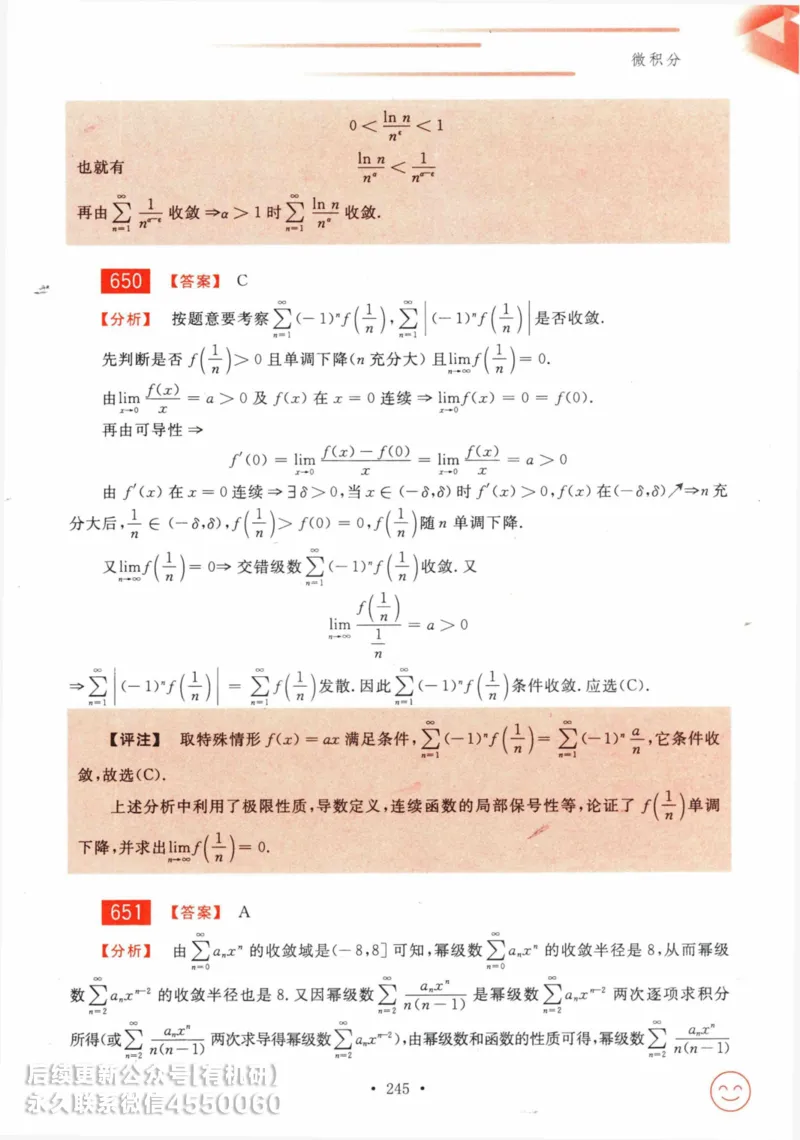 微积分
0 < \frac{\ln n}{n^ε} < 1
也就有 \frac{\ln n}{n^α} < \frac{1}{n^{α-ε}}
再由 \sum_{n=1}^{∞} \frac{1}{n^{α-ε}} 收敛 ⇒ α > 1 时 \sum_{n=1}^{∞} \frac{\ln n}{n^α} 收敛.
650 【答案】 C
【分析】 按题意要考察 \sum_{n=1}^{∞} (-1)^n f(\frac{1}{n}), \sum_{n=1}^{∞} |(-1)^n f(\frac{1}{n})| 是否收敛.
先判断是否 f(\frac{1}{n}) > 0 且单调下降(n 充分大) 且 \lim_{n→∞} f(\frac{1}{n}) = 0.
由 \lim_{x→0} \frac{f(x)}{x} = a > 0 及 f(x) 在 x = 0 连续 ⇒ \lim_{x→0} f(x) = 0 = f(0).
再由可导性 ⇒
f'(0) = \lim_{x→0} \frac{f(x) - f(0)}{x} = \lim_{x→0} \frac{f(x)}{x} = a > 0
由 f'(x) 在 x = 0 连续 ⇒ ∃ δ > 0, 当 x ∈ (-δ,δ) 时 f'(x) > 0, f(x) 在(-δ,δ)↗ ⇒ n 充
分大后, \frac{1}{n} ∈ (-δ,δ), f(\frac{1}{n}) > f(0) = 0, f(\frac{1}{n}) 随 n 单调下降.
又 \lim_{n→∞} f(\frac{1}{n}) = 0 ⇒ 交错级数 \sum_{n=1}^{∞} (-1)^n f(\frac{1}{n}) 收敛. 又
\lim_{n→∞} \frac{f(\frac{1}{n})}{\frac{1}{n}} = a > 0
⇒ \sum_{n=1}^{∞} |(-1)^n f(\frac{1}{n})| = \sum_{n=1}^{∞} f(\frac{1}{n}) 发散. 因此 \sum_{n=1}^{∞} (-1)^n f(\frac{1}{n}) 条件收敛. 应选(C).
【评注】 取特殊情形 f(x) = ax 满足条件, \sum_{n=1}^{∞} (-1)^n f(\frac{1}{n}) = \sum_{n=1}^{∞} (-1)^n \frac{a}{n}, 它条件收
敛, 故选(C).
上述分析中利用了极限性质, 导数定义, 连续函数的局部保号性等, 论证了 f(\frac{1}{n}) 单调
下降, 并求出 \lim_{n→∞} f(\frac{1}{n}) = 0.
651 【答案】 A
【分析】 由 \sum_{n=0}^{∞} a_n x^n 的收敛域是(-8,8] 可知, 幂级数 \sum_{n=0}^{∞} a_n x^n 的收敛半径是 8, 从而幂级
数 \sum_{n=2}^{∞} a_n x^{n-2} 的收敛半径也是 8. 又因幂级数 \sum_{n=2}^{∞} \frac{a_n x^n}{n(n-1)} 是幂级数 \sum_{n=2}^{∞} a_n x^{n-2} 两次逐项求积分
所得(或 \sum_{n=2}^{∞} \frac{a_n x^n}{n(n-1)} 两次求导得幂级数 \sum_{n=2}^{∞} a_n x^{n-2}), 由幂级数和函数的性质可得, 幂级数 \sum_{n=2}^{∞} \frac{a_n x^n}{n(n-1)}
后续更新公众号[有机研]
永久联系微信4550060
• 245 •